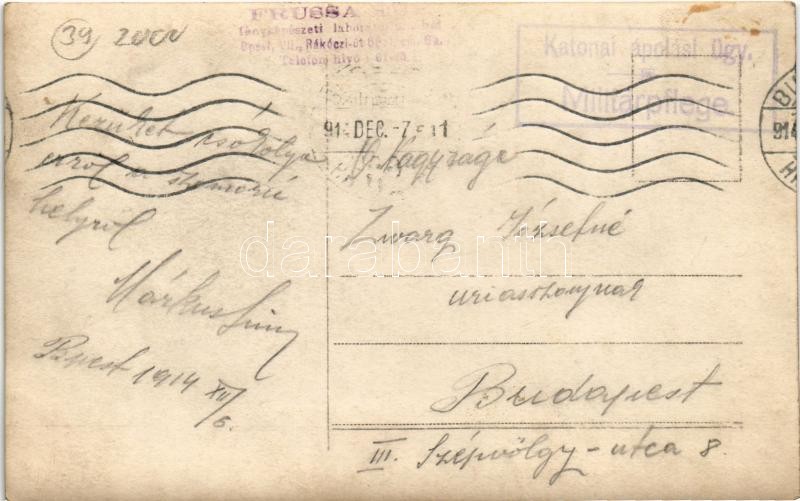 39 2000
FRUSSA
fényképészeti
Bpest, VII., Rákóczi-út
Telefonhívó
Katonai ápolási ügy.
Militärpflege
914 DEC. -7
914
Kezüket csókolja
erről a szomorú
helyről
Márkus
Bpest 1914 XII/6.
Ő Nagysága
Zwarg Józsefné
uriasszonynak
Budapest
III. Szépvölgy-utca 8.
darabanth